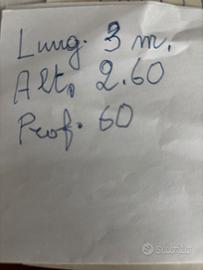 Lung. 3 m.
Alt. 2.60
Prof. 60
Subito.it